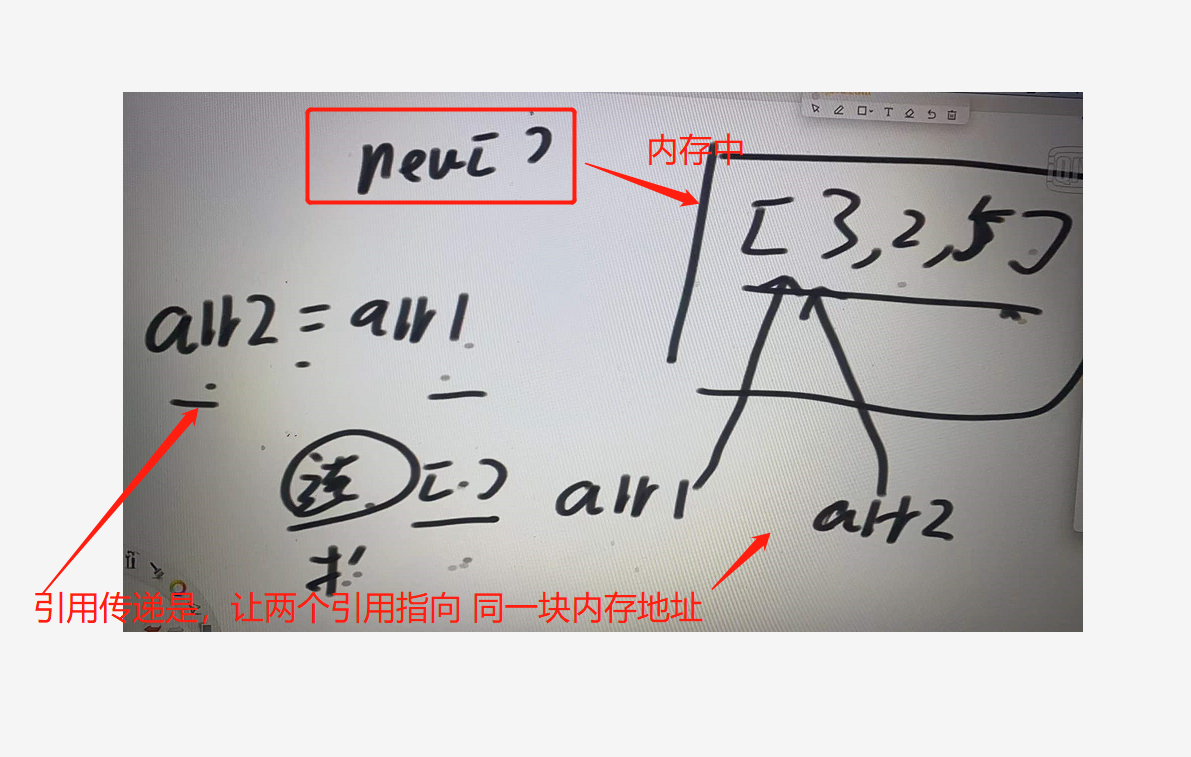 new[ ]
内存中
[3,2,5]
arr2 = arr1
[.]
arr1
arr2
引用传递是，让两个引用指向 同一块内存地址